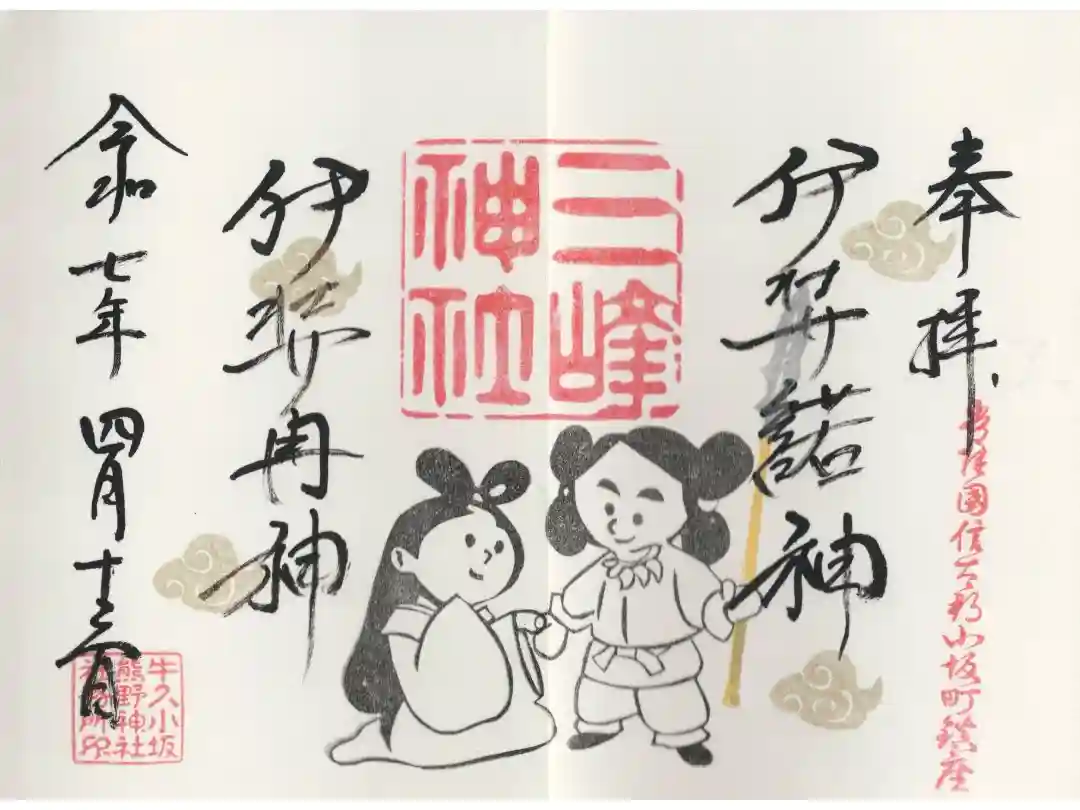 奉拝
常陸國信太郡小坂町鎮座
伊弉諾神
三峰
神社
伊弉冉神
令和七年 四月
牛久小坂
熊野神社
社務所印